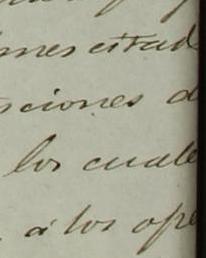 mes citad
sciones d
los cuale
á los ope